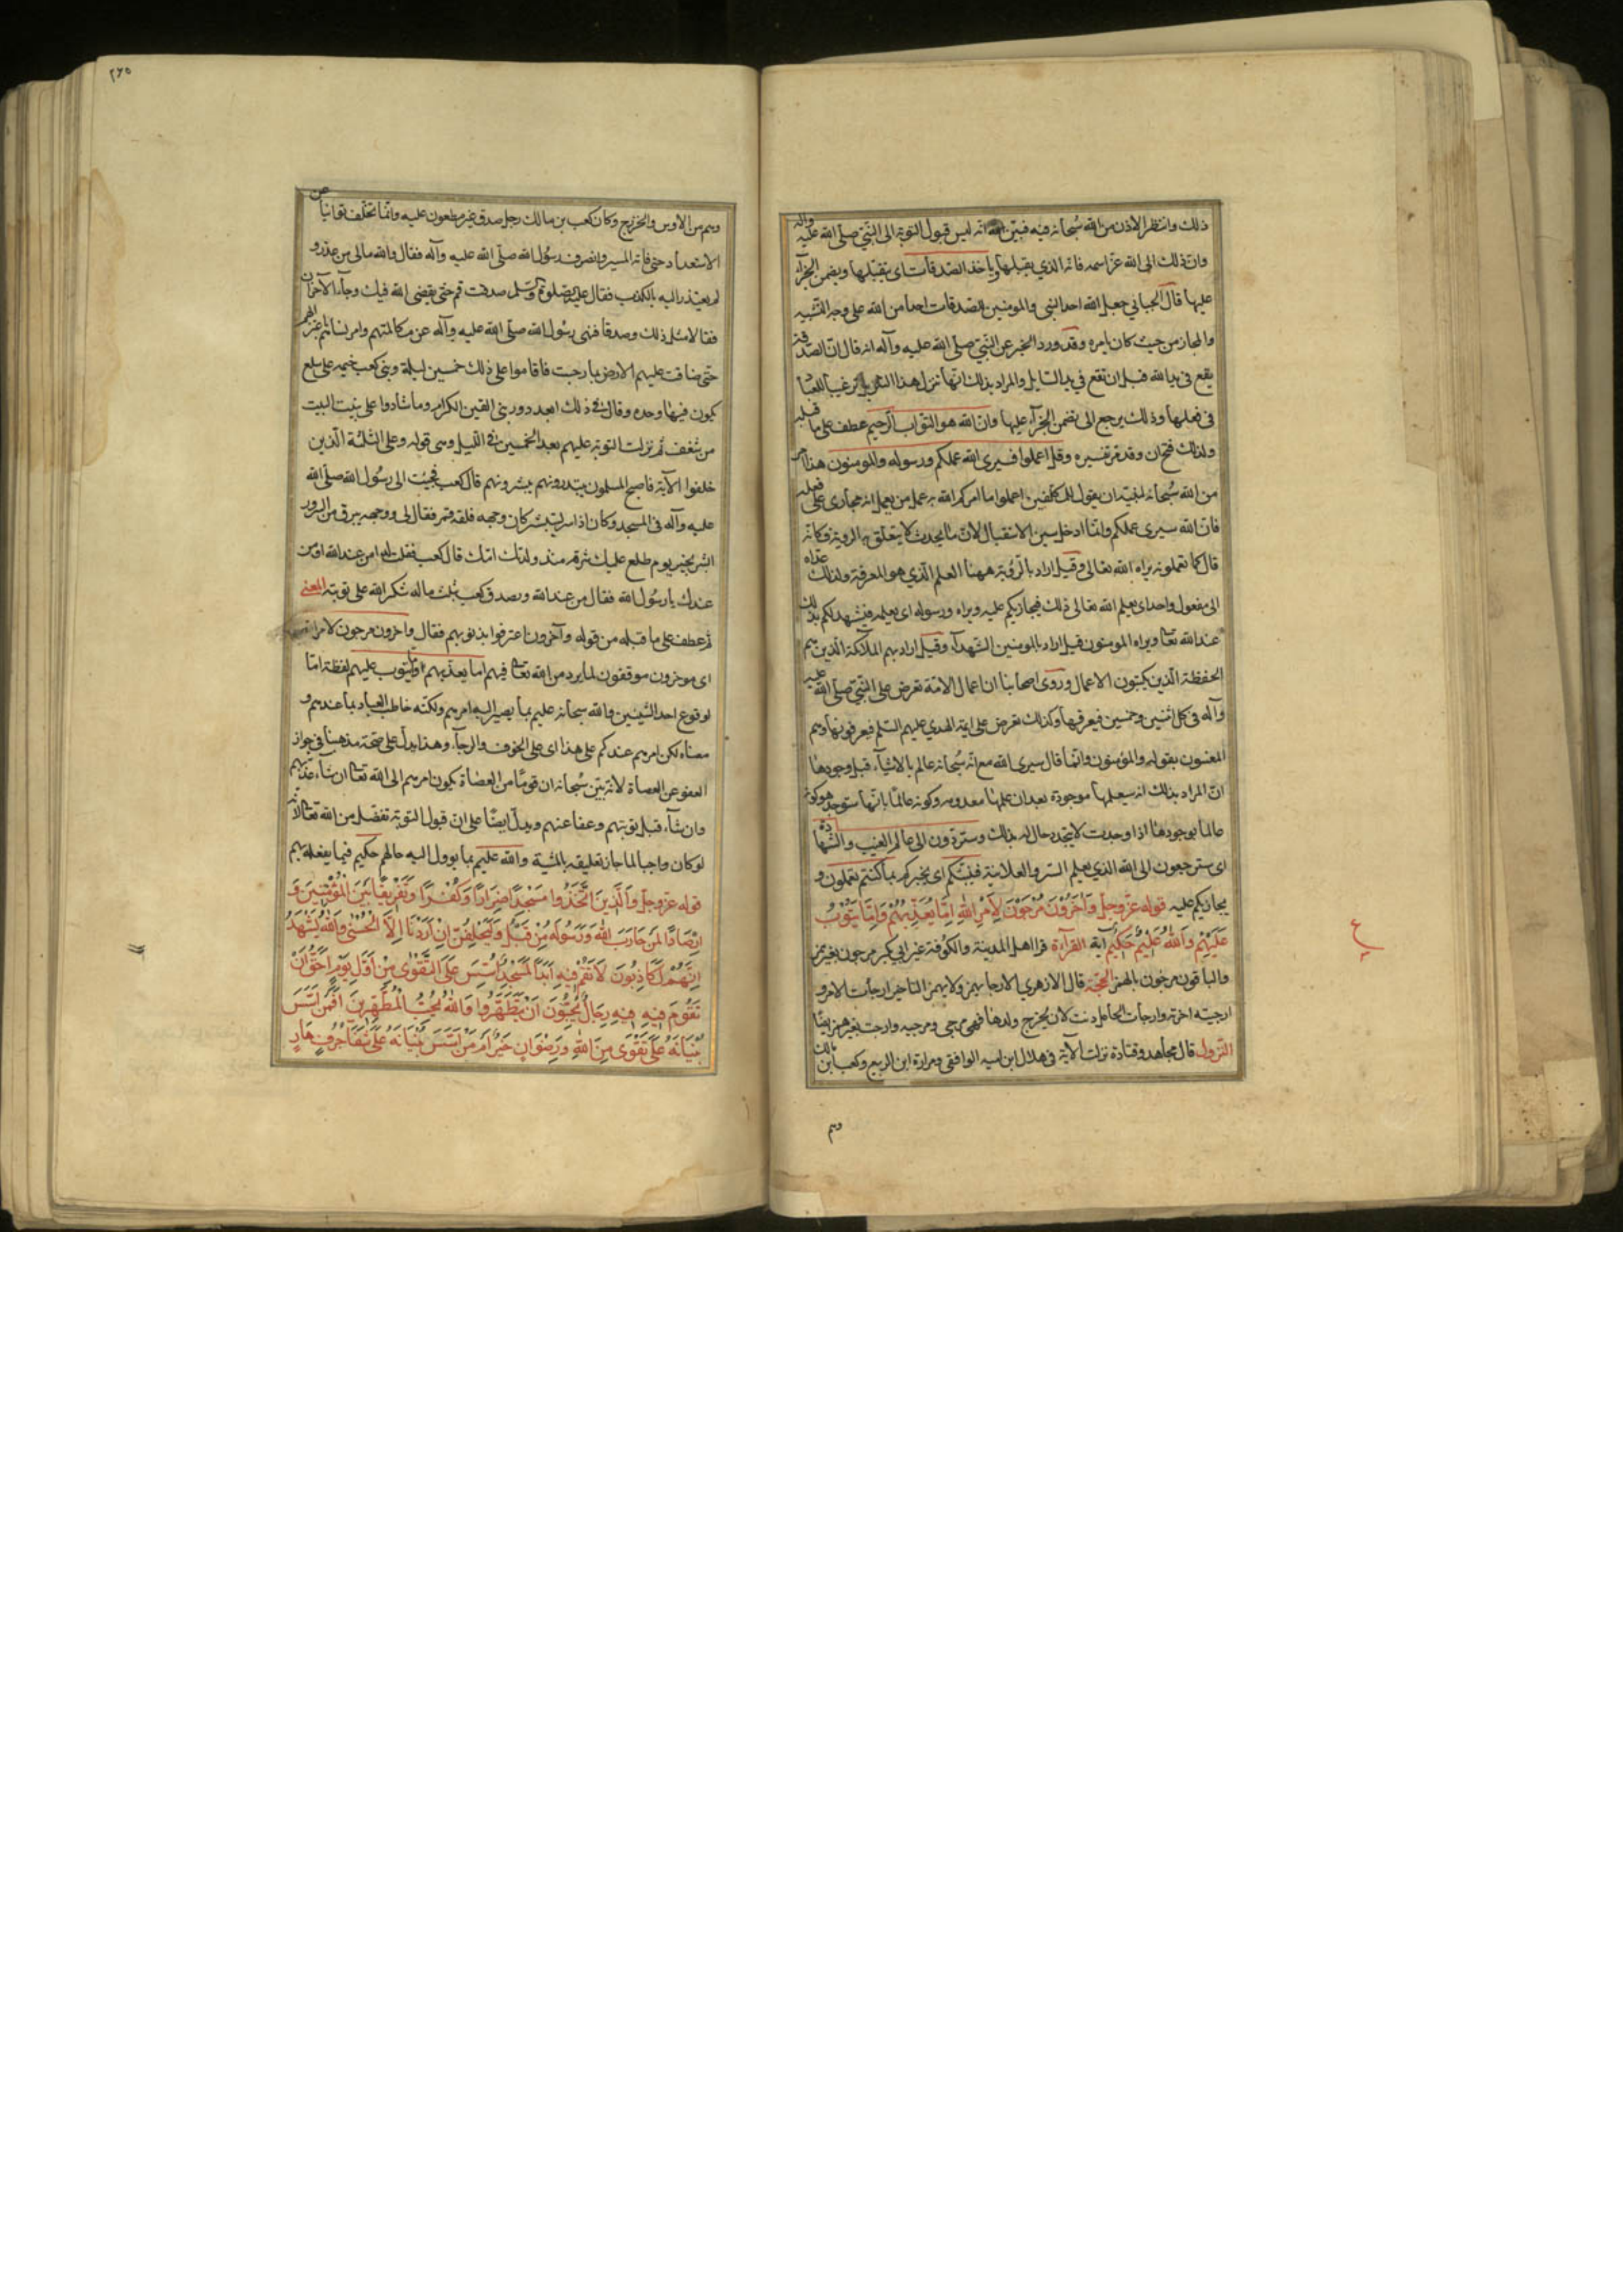 ذلك وانتظر الاذن من الله سُبحانه فيه فبيّن الله انه ليس قبول التوبة الى النّبيّ صلى الله عليه وآله
وان ذلك الى الله عزّ اسمه فانه الذي يقبلها وياخذ الصّدقات اى يتقبّلها ويضمن الجزآء
عليها قال الجباني جعل الله اخذ النبى والمومنين للصدقات اخذا من الله على وجه التّشبيه
والمجاز من حيث كان بامره وقد ورد الخبر عن النّبيّ صلى الله عليه وآله انه قال انّ الصّدقة
يقع فى يد الله قبل ان تقع فى يد السّايل والمراد بذلك انّها تنزل هذا التنزيل ترغيبا للعباد
فى فعلها وذلك يرجع الى تضمن الجزآء عليها وانّ الله هو التوّاب الرّحيم عطف على ما قبله
ولذلك فتح ان وقد مر تفسيره وقل اعملوا فسيرى الله عملكم ورسوله والمومنون هذا امر
من الله سُبحانه لنبيّه ان يقول للمكلّفين اعملوا ما امركم الله به عمل من يعلم انه مجازى على فعله
فانّ الله سيرى عملكم وانّما ادخل سين الاستقبال لانّ ما لم يحدث لا يتعلّق به الروية فكانّه
قال كلما تعملونه يراه الله تعالى وقيل اراد بالرّؤية ههنا العلم الّذي هو المعرفة ولذلك عدّاه
الى مفعول واحد اى يعلم الله تعالى ذلك فيجازيكم عليه ويراه ورسوله اى يعلمه فيشهد لكم بذلك
عند الله تعا ويراه المومنون قيل اراد بالمومنين الشّهدآء وقيل اراد بهم الملائكة الّذين هم
الحفظة الّذين يكتبون الاعمال وروى اصحابنا ان اعمال الامّة تعرض على النّبيّ صلى الله عليه
وآله فى كل اثنين وخميس فيعرفها وكذلك تعرض على ايمّة الهدي عليهم السّلم فيعرفونها وهم
المعنيون بقوله والمؤمنون وانّما قال سيرى الله مع انّه سُبحانه عالم بالاشيآء قبل وجودها
انّ المراد بذلك انه سيعلمها موجودة بعد ان علمها معدومه وكونه عالمًا بانّها ستوجد هو كونه
عالما بوجودها اذا وجدت لا يتجّدد حال له بذلك وستردّون الى عالم الغيب والشّهادة
اى سترجعون الى الله الذي يعلم السّر والعلانية فينبّئكم اى يخبركم بما كنتم تعملون و
يجازيكم عليه قوله عزّ وجلّ وَآخَرُوْنَ مُرْجَوْنَ لِاَمْرِ اللهِ اِمّا يُعَذِّبُهُمْ وَاِمَّا يَتُوْبُ
عَلَيْهِمْ وَاللهُ عَلِيْمٌ حَكِيْمٌ آية القرآءة قرا اهل المدينة والكوفة غير ابي بكر مرجون بغير همز
والباقون مرجئون بالهمز الحجّة قال الازهري الارجا يهمز ولا يهمز التاخير ارجأت الامر و
ارجيته اخرّته وارجأت الحامل دنت لان يخرج ولدها فهى مرجى ومرجيه وارجت بغير همز ايضًا
النّزول قال مجاهد وقتادة نزلت الاية فى هلال ابن اميه الواقفى ومرارة ابن الربيع وكعب ابن مالك
وهم
٢٦٥
وهم من الاوس والخزرج وكان كعب بن مالك رجل صدق غير مطعون عليه وانّما تخلّف توانيًا عن
الاستعداد حتى فاته المسير وانصرف رسُول الله صلّى الله عليه وآله فقال والله مالى من عذر و
لم يعتذر اليه بالكذب فقال عليه الصلوة والسّلم صدقت قم حتى يقضى الله فيك وجآء الآخران
فقالا مثل ذلك وصدقا فنهى رسُول الله صلى الله عليه وآله عن مكالمتهم وامر نساءهم باعتزالهم
حتّى ضاقت عليهم الارض بما رحبت فاقاموا على ذلك خمسين ليلة وبنى كعب خيمه على سلع
يكون فيها وحده وقال فى ذلك ابعد دور بنى القين الكرام وما شادوا على بنيت البيت
من سعف ثم نزلت التوبة عليهم بعد الخمسين فى اللّيل وهى قوله وعلى الثلثة الّذين
خلفوا الآية فاصبح المسلمون يبتدرونهم يبشّرونهم قال كعب فجئت الى رسُول الله صلّى الله
عليه وآله فى المسجد وكان اذا سرّ يستبشر كان وجهه فلقة قمر فقال لى ووجهه يبرق من السرور
ابشر بخير يوم طلع عليك شرقه منذ ولدتك امّك قال كعب فقلت له امن عند الله ام من
عندك يا رسُول الله فقال من عند الله وتصدق كعب بثلث ماله شكرا لله على توبته المعنى
ثم عطف على ما قبله من قوله وآخرون اعترفوا بذنوبهم فقال وآخرون مرجون لامر الله
اى موخرون موقفون لما يرد من الله تعا فيهم اما يعذّبهم او يتوب عليهم لفظة امّا
لوقوع احد الشّيئين والله سبحانه عليم بما يصير اليه امرهم ولكنّه خاطب العباد بما عندهم و
معناه ليكن امرهم عندكم على هذا اى على الخوف والرجآء وهذا يدلّ على صحّة مذهبنا فى جواز
العفو عن العصاة لانه بيّن سُبحانه ان قومًا من العصاة يكون امرهم الى الله تعا ان شآء عذّبهم
وان شآء قبل توبتهم وعفا عنهم ويدلّ ايضًا على انّ قبول التوبة تفضّل من الله تعا لانّه
لو كان واجبا لما جاز تعليقه بالمشيّة والله عليم بما يوول اليه حالهم حكيم فيما يفعله بهم
قوله عزّ وجلّ وَالَّذِينَ اتَّخَذُوا مَسْجِدًا ضِرَارًا وَكُفْرًا وَتَفْرِيقًا بَيْنَ الْمُؤْمِنِيْنَ وَ
اِرْصَادًا لِمَنْ حَارَبَ اللهَ وَرَسُولَهُ مِنْ قَبْلُ وَلَيَحْلِفُنَّ اِنْ اَرَدْنَا اِلَّا الْحُسْنٰى وَاللهُ يَشْهَدُ
اِنَّهُمْ لَكَاذِبُونَ لَا تَقُمْ فِيهِ اَبَدًا لَمَسْجِدٌ اُسِّسَ عَلَى التَّقْوٰى مِنْ اَوَّلِ يَوْمٍ اَحَقُّ اَنْ
تَقُومَ فِيهِ فِيهِ رِجَالٌ يُحِبُّونَ اَنْ يَتَطَهَّرُوا وَاللهُ يُحِبُّ الْمُطَّهِّرِينَ اَفَمَنْ اَسَّسَ
بُنْيَانَهُ عَلَى تَقْوٰى مِنَ اللهِ وَرِضْوَانٍ خَيْرٌ اَمْ مَنْ اَسَّسَ بُنْيَانَهُ عَلَى شَفَا جُرُفٍ هَارٍ